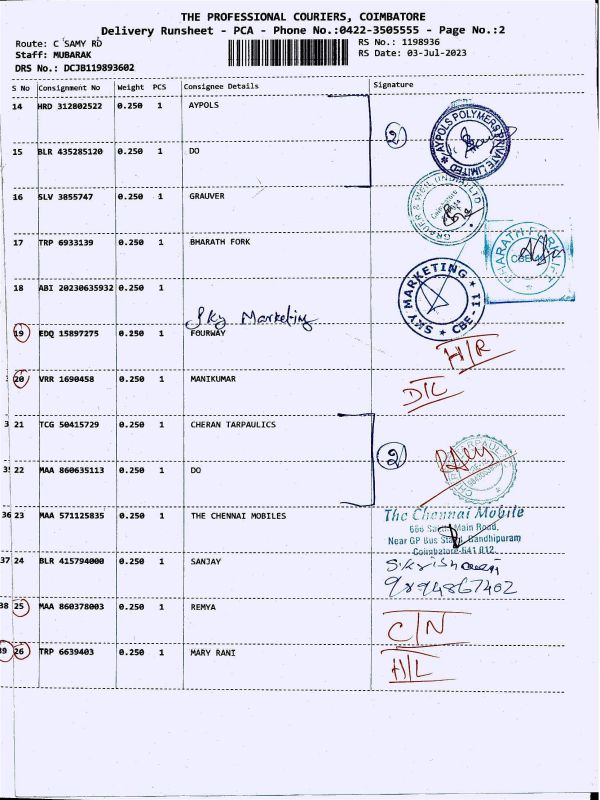 THE PROFESSIONAL COURIERS, COIMBATORE
Delivery Runsheet - PCA - Phone No.:0422-3505555 - Page No.:2
Route: C SAMY RD
RS No.: 1198936
Staff: MUBARAK
RS Date: 03-Jul-2023
DRS No.: DCJB119893602
S No Consignment No Weight PCS Consignee Details Signature
14 HRD 312802522 0.250 1 AYPOLS
2
AYPOLS POLYMERS PRIVATE LIMITED
15 BLR 435285120 0.250 1 DO
16 SLV 3855747 0.250 1 GRAUVER
GRAUER & WEIL (INDIA) LTD
17 TRP 6933139 0.250 1 BHARATH FORK
BHARATH FORK LIFT
18 ABI 20230635932 0.250 1
Sky Marketing
SKY MARKETING
CBE - 11
19 EDQ 15897275 0.250 1 FOURWAY
H/R
20 VRR 1690458 0.250 1 MANIKUMAR
D/L
21 TCG 50415729 0.250 1 CHERAN TARPAULICS
2
22 MAA 860635113 0.250 1 DO
36 23 MAA 571125835 0.250 1 THE CHENNAI MOBILES
The Chennai Mobile
Main Road,
Near GP Bus Stand, Gandhipuram
Coimbatore-641 012
37 24 BLR 415794000 0.250 1 SANJAY
9894867402
38 25 MAA 860378003 0.250 1 REMYA
C/N
39 26 TRP 6639403 0.250 1 MARY RANI
H/L